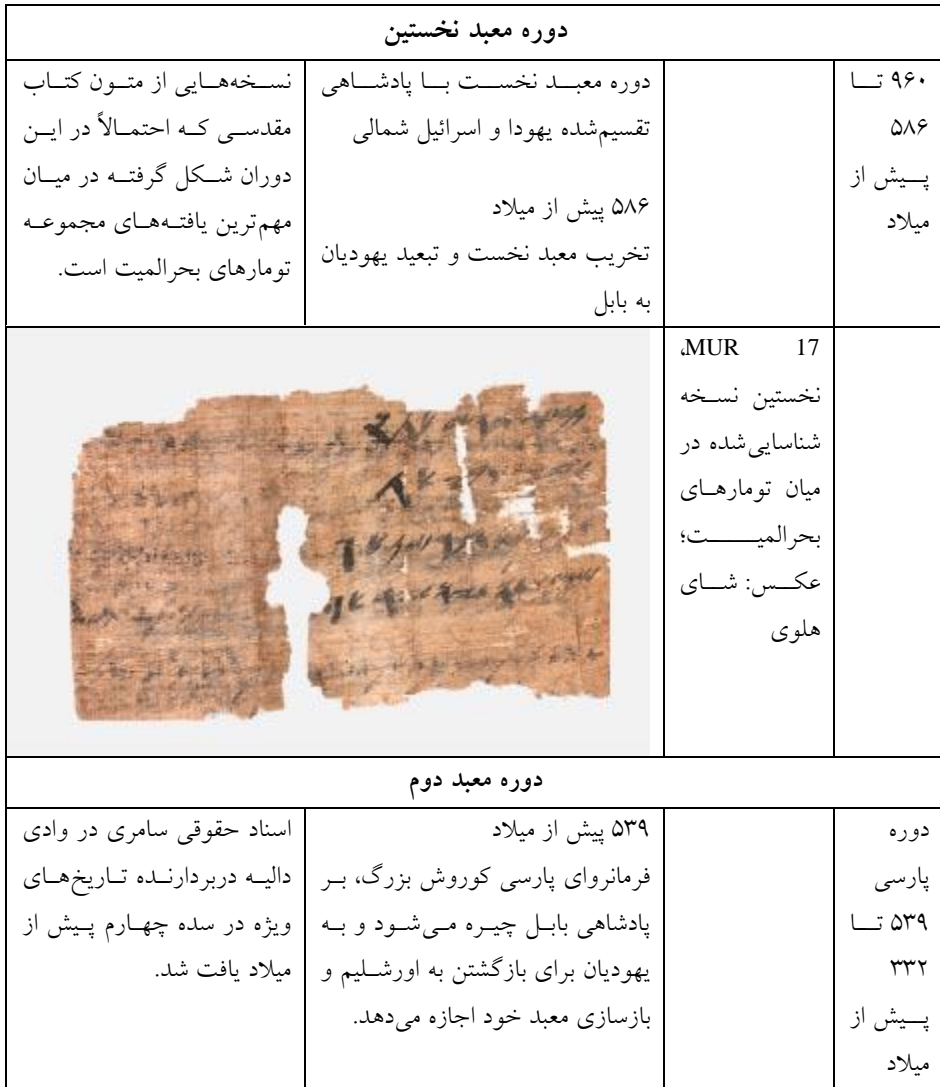 دوره معبد نخستین
۹۶۰ تا
۵۸۶
پیش از
میلاد
دوره معبد نخست با پادشاهی
تقسیم‌شده یهودا و اسرائیل شمالی
۵۸۶ پیش از میلاد
تخریب معبد نخست و تبعید یهودیان
به بابل
نسخه‌هایی از متون کتاب
مقدسی که احتمالاً در این
دوران شکل گرفته در میان
مهم‌ترین یافته‌های مجموعه
تومارهای بحرالمیت است.
MUR 17،
نخستین نسخه
شناسایی‌شده در
میان تومارهای
بحرالمیت؛
عکس: شای
هلوی
دوره معبد دوم
دوره
پارسی
۵۳۹ تا
۳۳۲
پیش از
میلاد
۵۳۹ پیش از میلاد
فرمانروای پارسی کوروش بزرگ، بر
پادشاهی بابل چیره می‌شود و به
یهودیان برای بازگشتن به اورشلیم و
بازسازی معبد خود اجازه می‌دهد.
اسناد حقوقی سامری در وادی
دالیه دربردارنده تاریخ‌های
ویژه در سده چهارم پیش از
میلاد یافت شد.